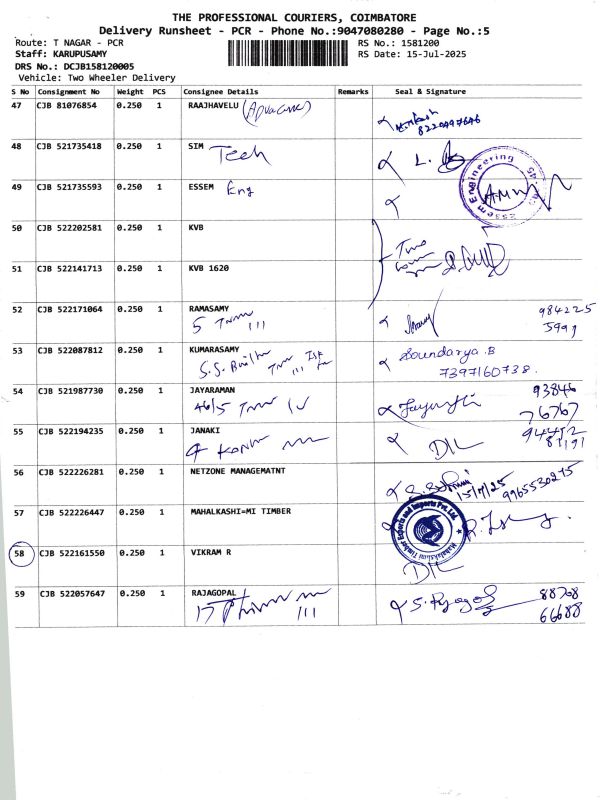 THE PROFESSIONAL COURIERS, COIMBATORE
Delivery Runsheet - PCR - Phone No.:9047080280 - Page No.:5
Route: T NAGAR - PCR RS No.: 1581200
Staff: KARUPUSAMY RS Date: 15-Jul-2025
DRS No.: DCJB158120005
Vehicle: Two Wheeler Delivery
S No Consignment No Weight PCS Consignee Details Remarks Seal & Signature
47 CJB 81076854 0.250 1 RAAJHAVELU
48 CJB 521735418 0.250 1 SIM
Tech
49 CJB 521735593 0.250 1 ESSEM Eng
Essem Engineering
50 CJB 522202581 0.250 1 KVB
Two
51 CJB 522141713 0.250 1 KVB 1620
52 CJB 522171064 0.250 1 RAMASAMY 984225
5 111 3991
53 CJB 522087812 0.250 1 KUMARASAMY Soundarya.B
S.S. 111 7397160738.
54 CJB 521987730 0.250 1 JAYARAMAN 93846
46/5 76767
55 CJB 522194235 0.250 1 JANAKI D/L 94452
4 81191
56 CJB 522226281 0.250 1 NETZONE MANAGEMATNT
15/7/25 9965530275
57 CJB 522226447 0.250 1 MAHALKASHI-MI TIMBER
Mahalakshmi Timber Exports and Imports Pvt. Ltd.
58 CJB 522161550 0.250 1 VIKRAM R
D/L
59 CJB 522057647 0.250 1 RAJAGOPAL 88708
17 111 66688